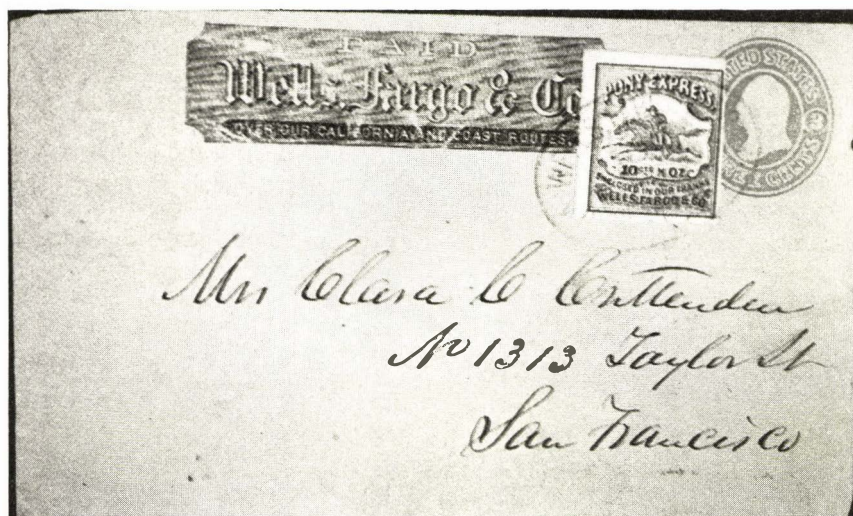 PAID
Wells, Fargo & Co
OVER OUR CALIFORNIA AND COAST ROUTES.
PONY EXPRESS
10 cts ½ OZ.
ENCLOSED IN OUR FRANKS
WELLS, FARGO & CO.
UNITED STATES
CENTS
Mrs Clara C Crittenden
No 1313 Taylor St
San Francisco